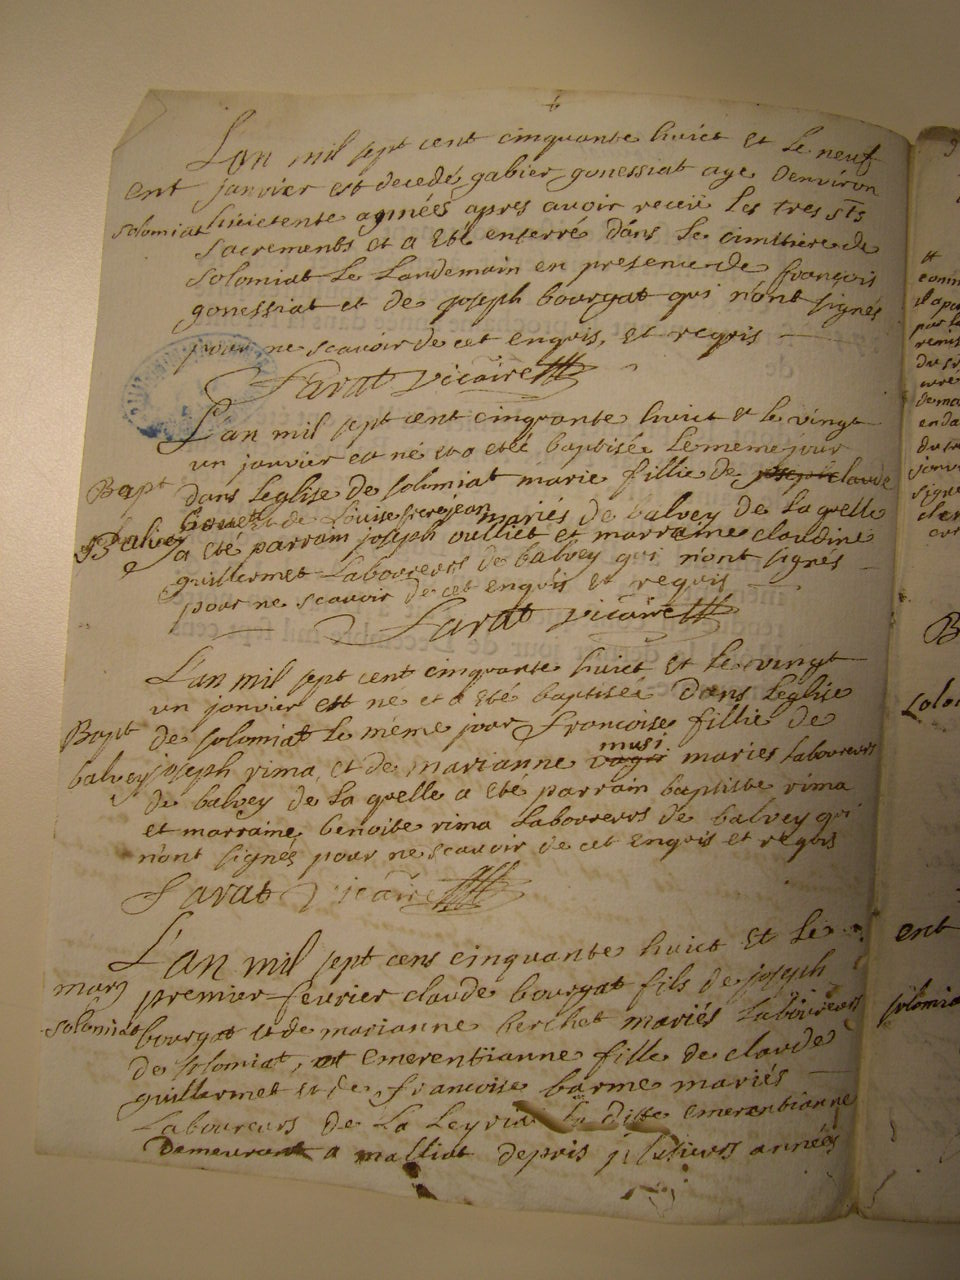 L'an mil sept cent cinquante huict et le neuf
ent janvier est decedé gabier gonessiat age denviron
solomiat huictente agnéés apres avoir receu les tres sts
sacrements et a eté enterré dans le cimitiere de
solomiat le landemain en presence de françois
gonessiat et de joseph bourgat qui n'ont signés
pour ne scavoir de cet enquis, et requis
Sarat vicaire
L'an mil sept cent cinquante huict et le vingt
un janvier est né et a eté baptisée le meme jour
Bapt dans leglise de solomiat marie fillie de joseph claude
bouett et de Louise frerejean mariés de balvey de la quelle
Balvey a eté parrain joseph oulliet et marraine claudine
guillermet laboureurs de balvey qui n'ont signés
pour ne scavoir de cet enquis et requis
Sarat vicaire
L'an mil sept cent cinquante huict et le vingt
un janvier est né et a eté baptiséé dans leglise
Bapt de solomiat le méme jour francoise fillie de
musi
balvey joseph rima, et de marianne vagir mariés laboureurs
de balvey de la quelle a eté parrain baptiste rima
et marraine benoite rima laboureurs de balvey qui
n'ont signés pour ne scavoir de cet enquis et requis
Sarat Vicaire
L'an mil sept cens cinquante huict et le
mary premier fevrier claude bourgat fils de joseph
solomiat bourgat et de marianne berchet mariés laboureurs
de solomiat, et emerentianne fille de claude
guillermet et de francoise barme mariés
Laboureurs de La Leyria la ditte emerentianne
Demeurant a malliat depuis plusieurs annéés
B
ent
solomia